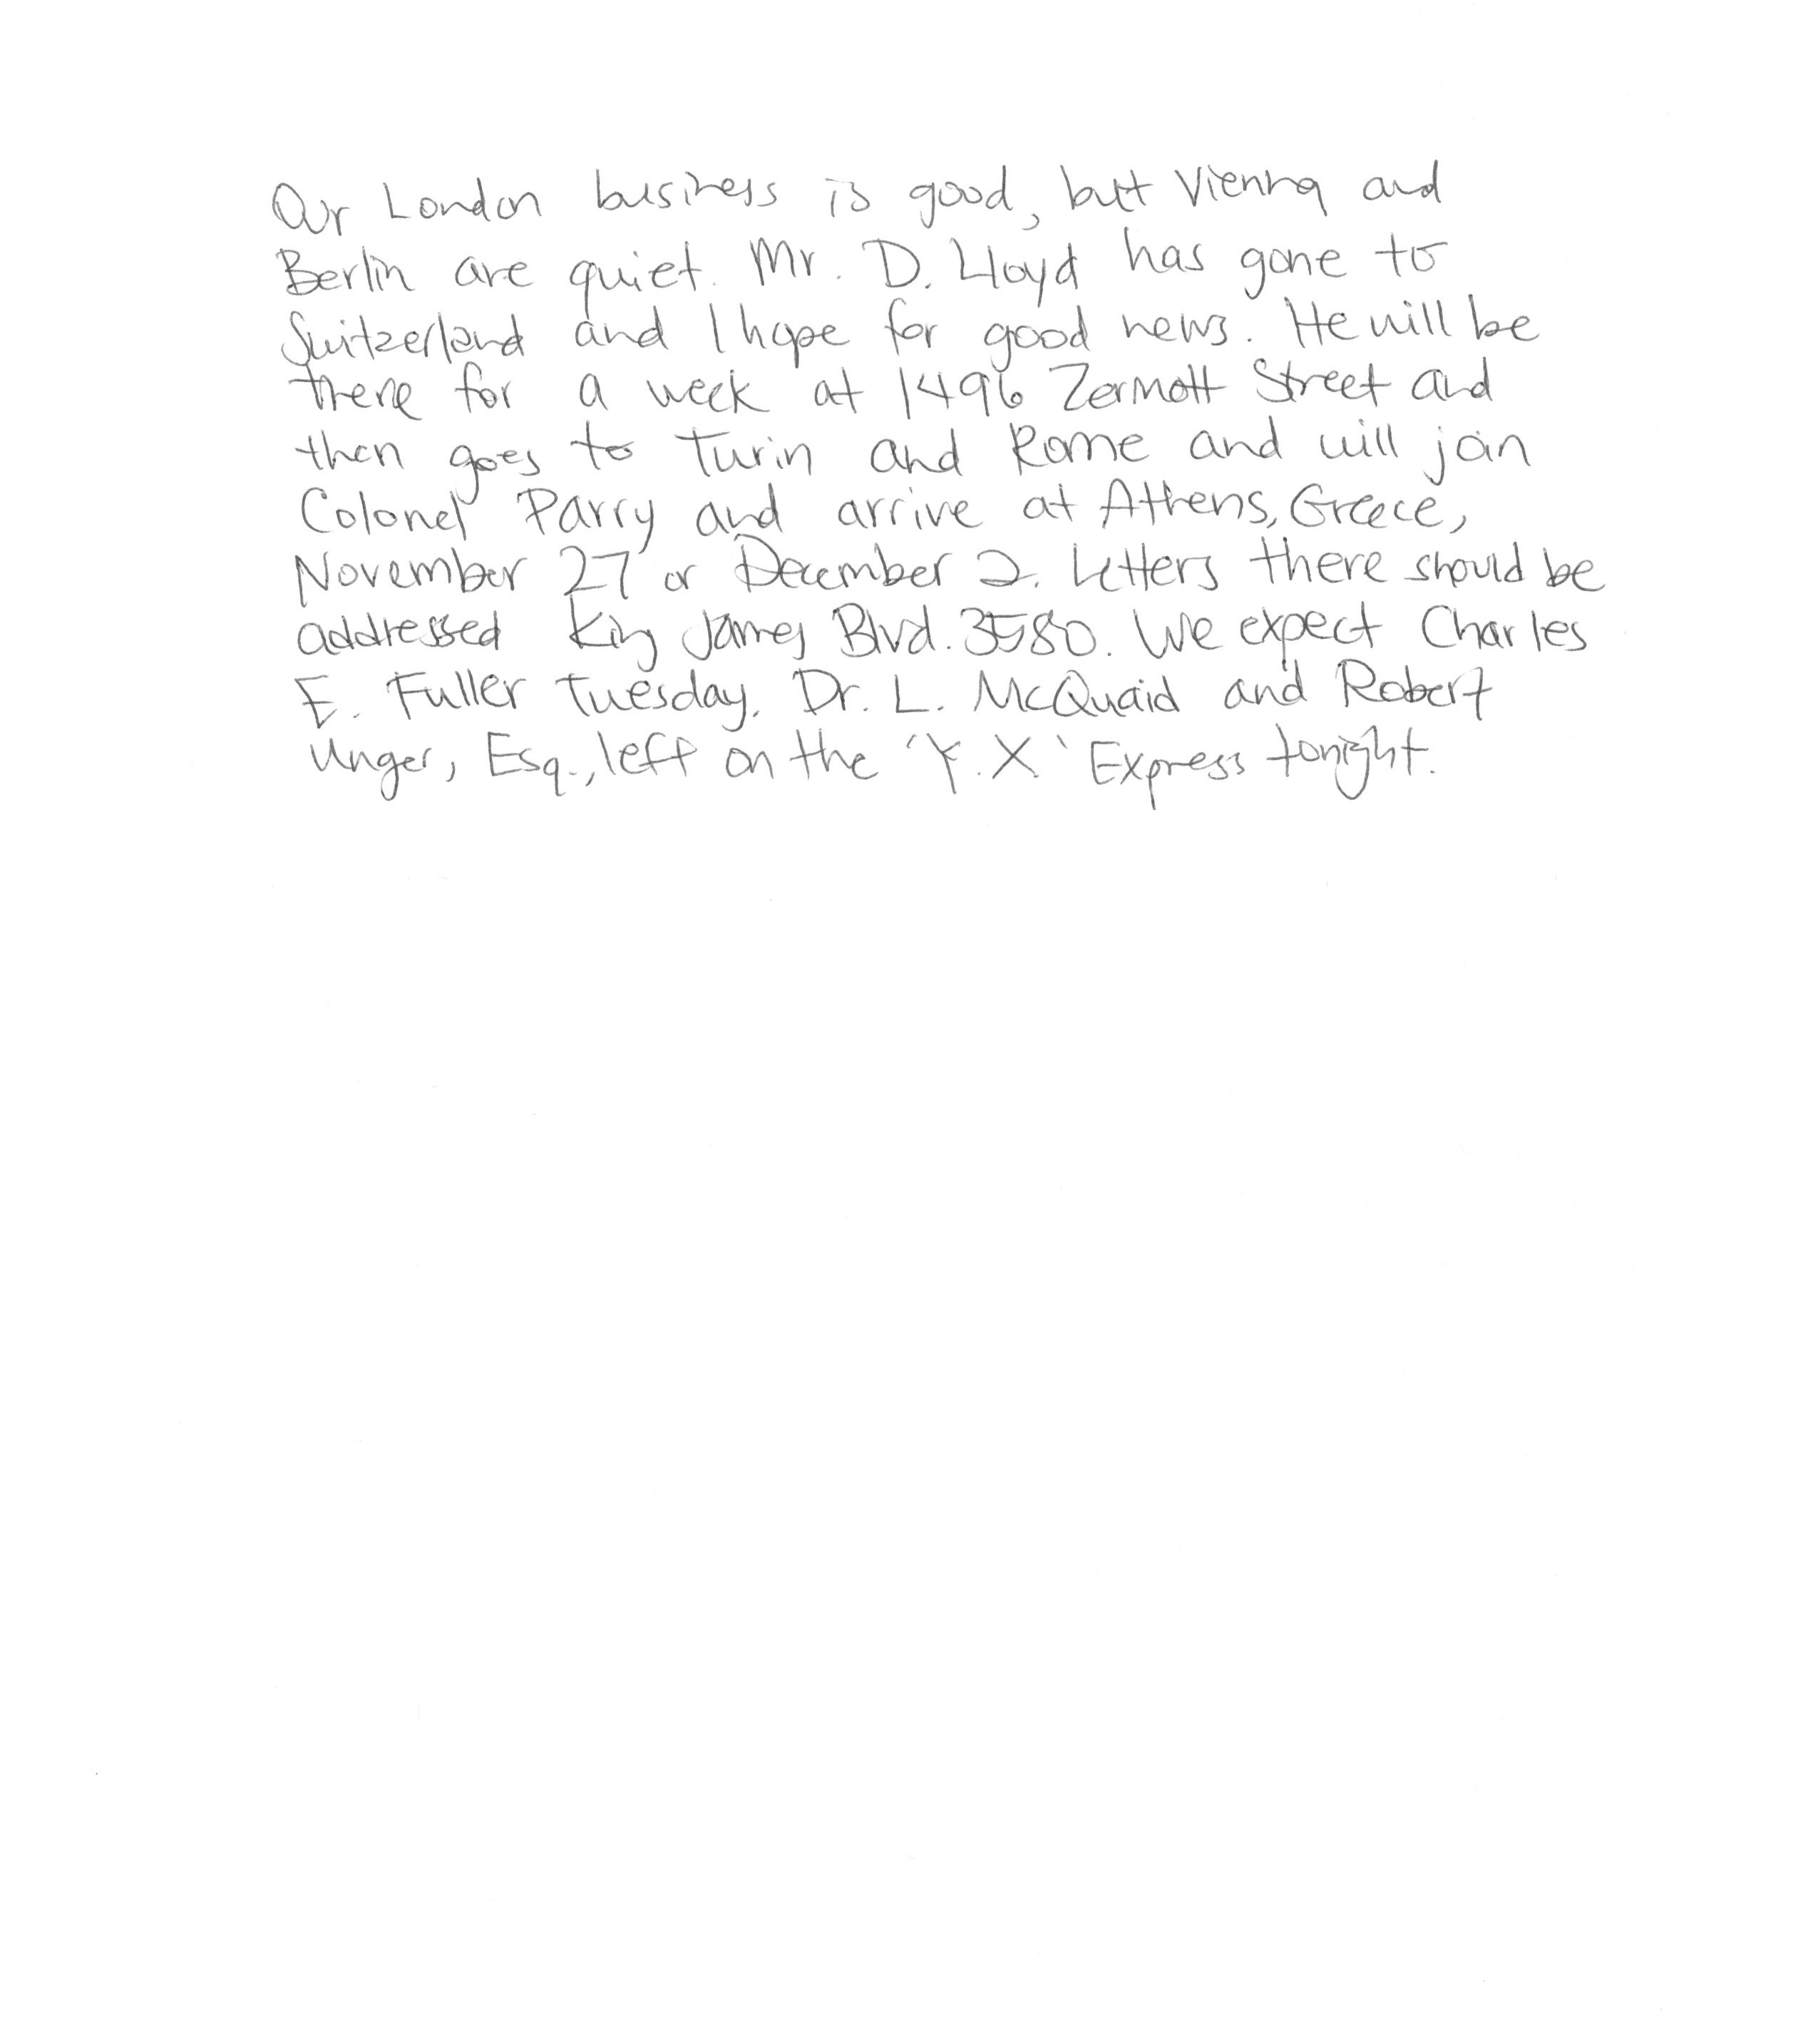 Our London business is good, but Vienna and
Berlin are quiet. Mr. D. Lloyd has gone to
Switzerland and I hope for good news. He will be
there for a week at 1496 Zermott Street and
then goes to Turin and Rome and will join
Colonel Parry and arrive at Athens, Greece,
November 27 or December 2. Letters there should be
addressed King James Blvd. 3580. We expect Charles
E. Fuller Tuesday. Dr. L. McQuaid and Robert
Unger, Esq., left on the 'Y.X.' Express tonight.